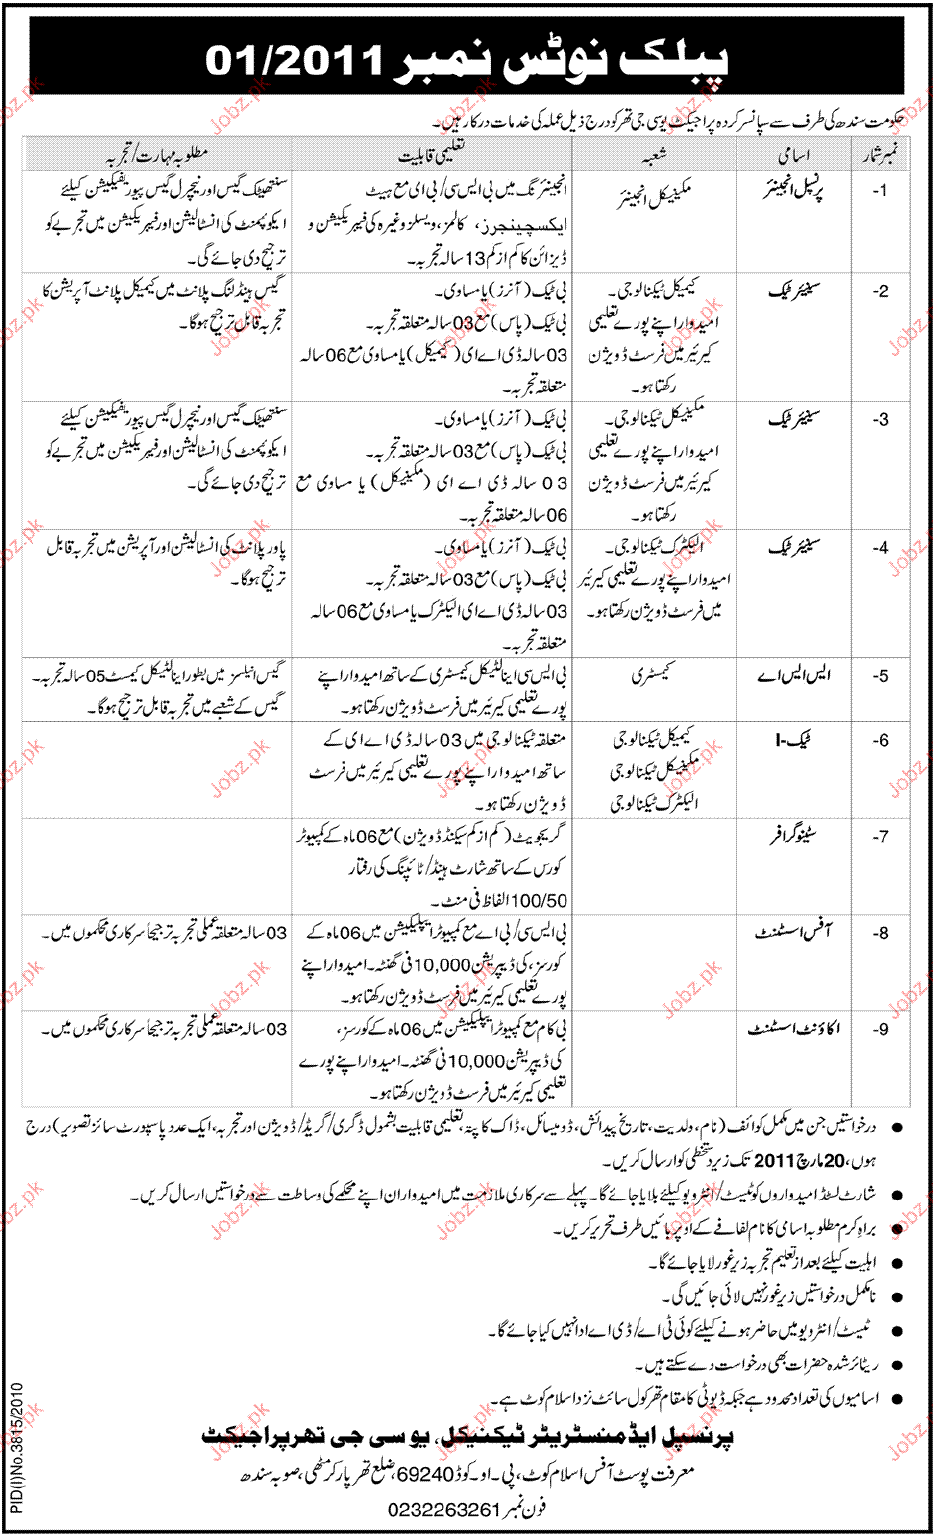 پبلک نوٹس نمبر 01/2011
حکومت سندھ کی طرف سے سپانسر کردہ پراجیکٹ یو سی جی تھر کو درج ذیل عملہ کی خدمات درکار ہیں۔
نمبر شمار اسامی شعبہ تعلیمی قابلیت مطلوبہ مہارت/تجربہ
1- پرنسپل انجینئر مکینیکل انجینئر
انجینئرنگ میں بی ایس سی/بی ای مع ہیٹ
ایکسچینجرز، کالمز، ویسلز وغیرہ کی فیبریکیشن و
ڈیزائن کا کم از کم 13 سالہ تجربہ۔
سنتھیٹک گیس اور نیچرل گیس پیوریفیکیشن کیلئے
ایکوپمنٹ کی انسٹالیشن اور فیبریکیشن میں تجربے کو
ترجیح دی جائے گی۔
2- سینئر ٹیک
کیمیکل ٹیکنالوجی۔
امیدوار اپنے پورے تعلیمی
کیرئیر میں فرسٹ ڈویژن
رکھتا ہو۔
بی ٹیک (آنرز) یا مساوی۔
بی ٹیک (پاس) مع 03 سالہ متعلقہ تجربہ۔
03 سالہ ڈی اے ای (کیمیکل) یا مساوی مع 06 سالہ
متعلقہ تجربہ۔
گیس ہینڈلنگ پلانٹ میں کیمیکل پلانٹ آپریشن کا
تجربہ قابل ترجیح ہوگا۔
3- سینئر ٹیک
مکینیکل ٹیکنالوجی۔
امیدوار اپنے پورے تعلیمی
کیرئیر میں فرسٹ ڈویژن
رکھتا ہو۔
بی ٹیک (آنرز) یا مساوی۔
بی ٹیک (پاس) مع 03 سالہ متعلقہ تجربہ۔
03 سالہ ڈی اے ای (مکینیکل) یا مساوی مع
06 سالہ متعلقہ تجربہ۔
سنتھیٹک گیس اور نیچرل گیس پیوریفیکیشن کیلئے
ایکوپمنٹ کی انسٹالیشن اور فیبریکیشن میں تجربے کو
ترجیح دی جائے گی۔
4- سینئر ٹیک
الیکٹرک ٹیکنالوجی۔
امیدوار اپنے پورے تعلیمی کیرئیر
میں فرسٹ ڈویژن رکھتا ہو۔
بی ٹیک (آنرز) یا مساوی۔
بی ٹیک (پاس) مع 03 سالہ متعلقہ تجربہ۔
03 سالہ ڈی اے ای الیکٹرک یا مساوی مع 06 سالہ
متعلقہ تجربہ۔
پاور پلانٹ کی انسٹالیشن اور آپریشن میں تجربہ قابل
ترجیح ہوگا۔
5- ایس ایس اے کیمسٹری
بی ایس سی اینالیٹیکل کیمسٹری کے ساتھ امیدوار اپنے
پورے تعلیمی کیرئیر میں فرسٹ ڈویژن رکھتا ہو۔
گیس انیلسز میں بطور اینالیٹیکل کیمسٹ 05 سالہ تجربہ۔
گیس کے شعبے میں تجربہ قابل ترجیح ہوگا۔
6- ٹیک-I
کیمیکل ٹیکنالوجی
مکینیکل ٹیکنالوجی
الیکٹرک ٹیکنالوجی
متعلقہ ٹیکنالوجی میں 03 سالہ ڈی اے ای کے
ساتھ امیدوار اپنے پورے تعلیمی کیرئیر میں فرسٹ
ڈویژن رکھتا ہو۔
7- سٹینوگرافر
گریجویٹ (کم از کم سیکنڈ ڈویژن) مع 06 ماہ کے کمپیوٹر
کورس کے ساتھ شارٹ ہینڈ/ٹائپنگ کی رفتار
100/50 الفاظ فی منٹ۔
8- آفس اسسٹنٹ
بی ایس سی/بی اے مع کمپیوٹر ایپلیکیشن میں 06 ماہ کے
کورسز، کی ڈیپریشن 10,000 فی گھنٹہ۔ امیدوار اپنے
پورے تعلیمی کیرئیر میں فرسٹ ڈویژن رکھتا ہو۔
03 سالہ متعلقہ عملی تجربہ ترجیحاً سرکاری محکموں میں۔
9- اکاؤنٹ اسسٹنٹ
بی کام مع کمپیوٹر ایپلیکیشن میں 06 ماہ کے کورسز،
کی ڈیپریشن 10,000 فی گھنٹہ۔ امیدوار اپنے پورے
تعلیمی کیرئیر میں فرسٹ ڈویژن رکھتا ہو۔
03 سالہ متعلقہ عملی تجربہ ترجیحاً سرکاری محکموں میں۔
● درخواستیں جن میں مکمل کوائف (نام، ولدیت، تاریخ پیدائش، ڈومیسائل، ڈاک کا پتہ، تعلیمی قابلیت بشمول ڈگری/گریڈ/ڈویژن اور تجربہ، ایک عدد پاسپورٹ سائز تصویر) درج
ہوں، 20 مارچ 2011 تک زیر دستخطی کو ارسال کریں۔
● شارٹ لسٹڈ امیدواروں کو ٹیسٹ/انٹرویو کیلئے بلایا جائے گا۔ پہلے سے سرکاری ملازمت میں امیدواران اپنے محکمے کی وساطت سے درخواستیں ارسال کریں۔
● براہ کرم مطلوبہ اسامی کا نام لفافے کے اوپر بائیں طرف تحریر کریں۔
● اہلیت کیلئے بعد از تعلیم تجربہ زیر غور لایا جائے گا۔
● نامکمل درخواستیں زیر غور نہیں لائی جائیں گی۔
● ٹیسٹ/انٹرویو میں حاضر ہونے کیلئے کوئی ٹی اے/ڈی اے ادا نہیں کیا جائے گا۔
● ریٹائرشدہ حضرات بھی درخواست دے سکتے ہیں۔
● اسامیوں کی تعداد محدود ہے جبکہ ڈیوٹی کا مقام تھر کول سائٹ نزد اسلام کوٹ ہے۔
پرنسپل ایڈمنسٹریٹر ٹیکنیکل، یو سی جی تھر پراجیکٹ
معرفت پوسٹ آفس اسلام کوٹ، پی۔او۔کوڈ 69240، ضلع تھرپارکر مٹھی، صوبہ سندھ
فون نمبر 0232263261
PID(I)No.3815/2010
Jobz.pk